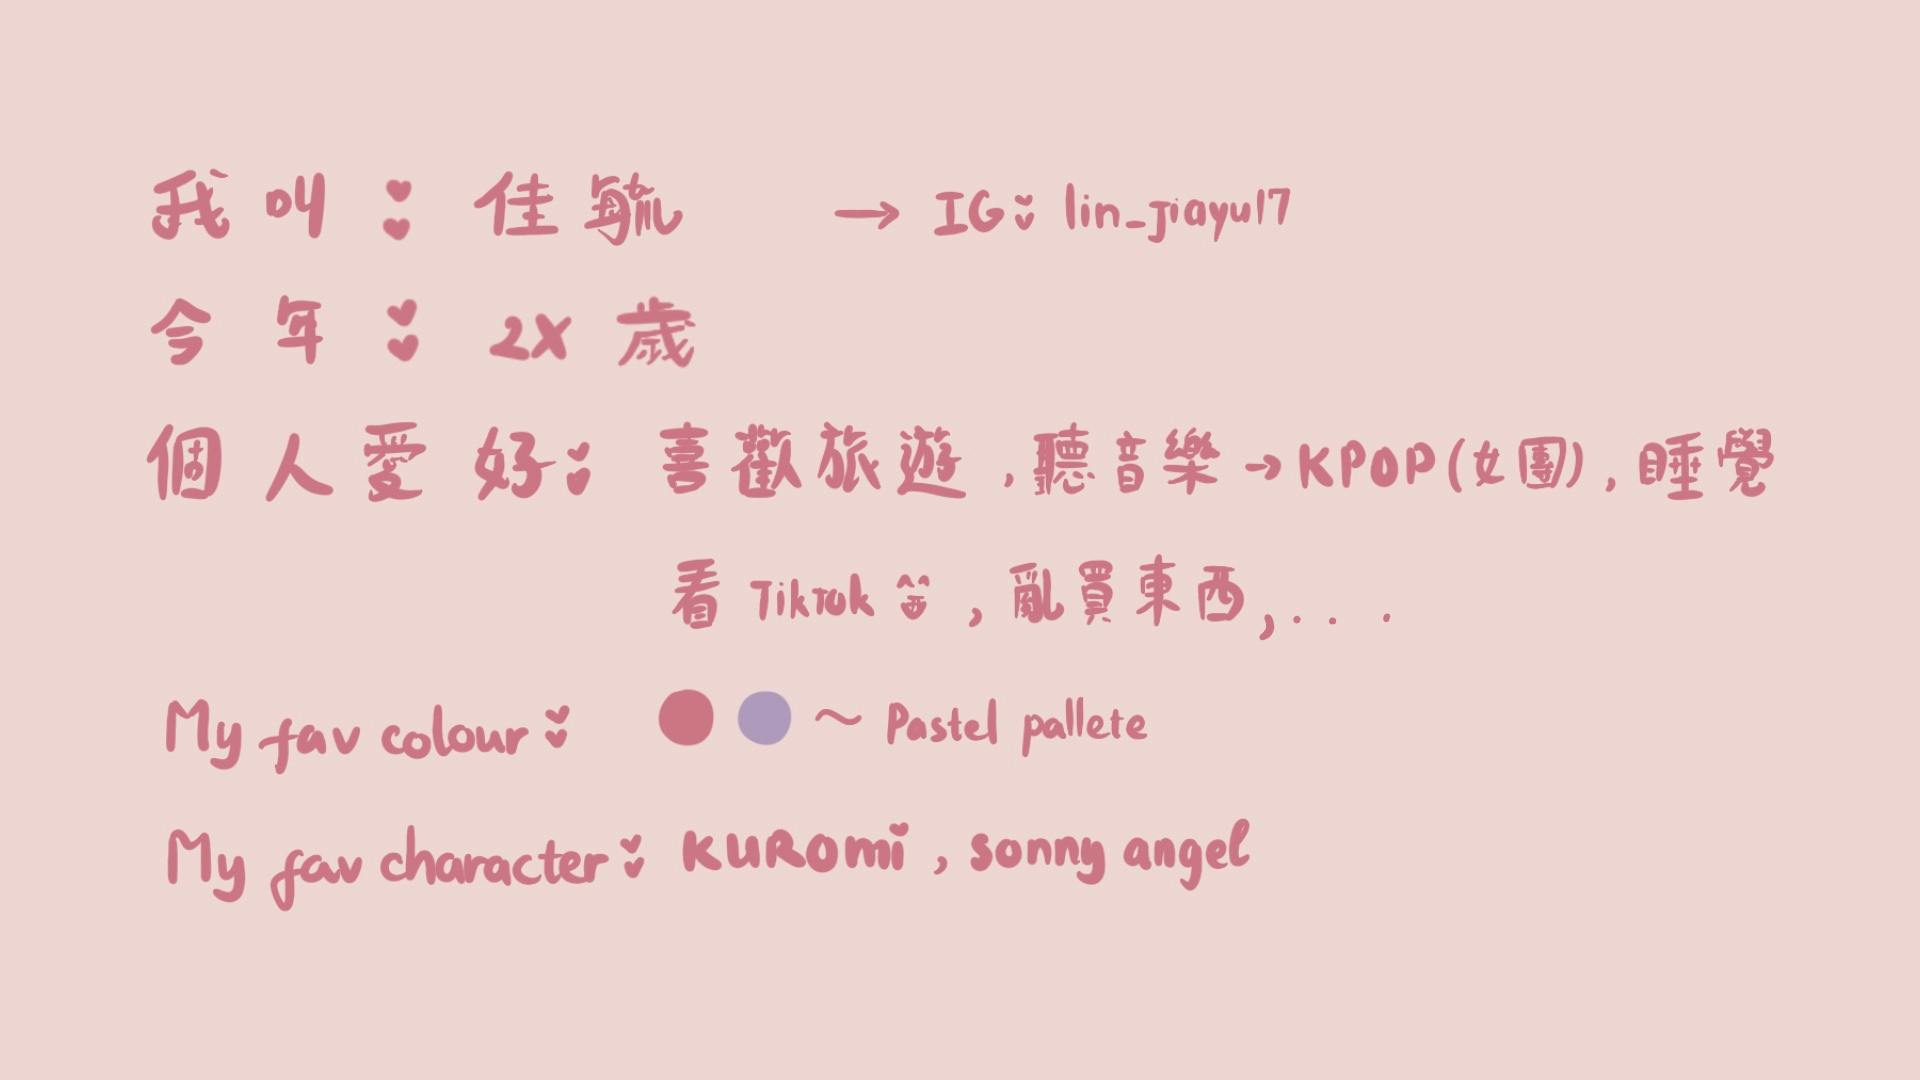 我叫：佳毓 → IG：lin_jiayu17
今年：2X歲
個人愛好：喜歡旅遊，聽音樂→KPOP(女團)，睡覺
看TikTok，亂買東西，...
My fav colour: ~ Pastel pallete
My fav character: KUROMi, sonny angel